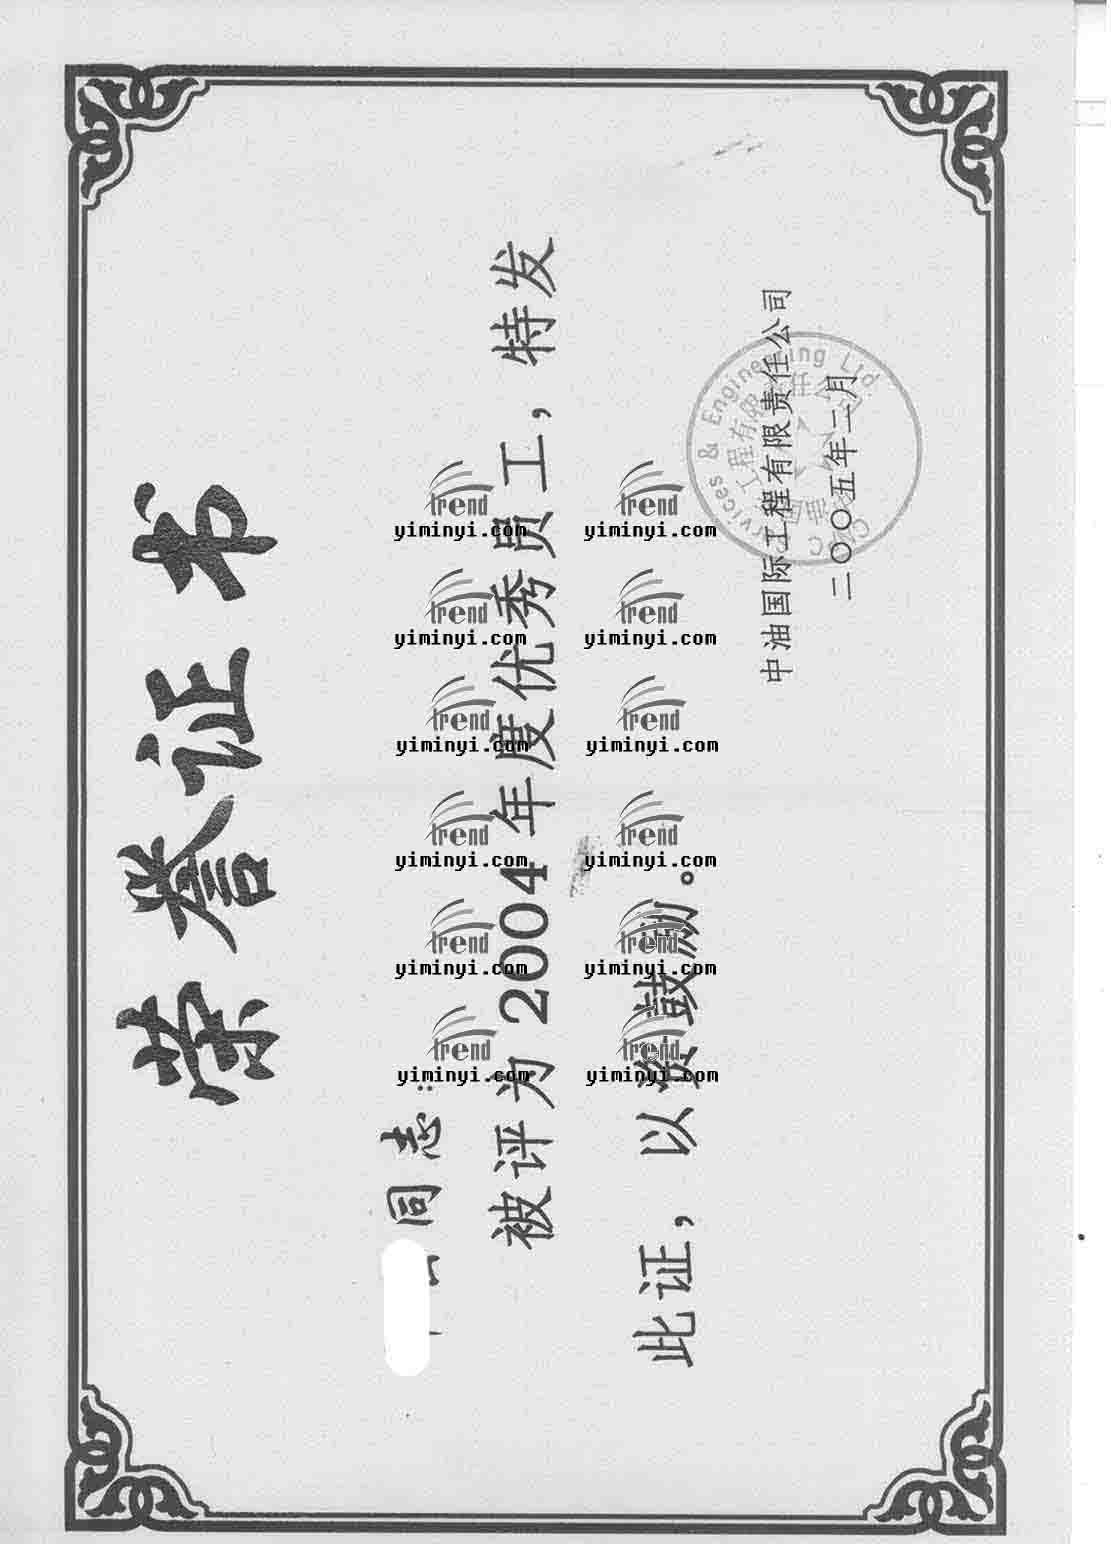 荣誉证书
同志:
被评为2004年度优秀员工,特发
此证,以资鼓励。
中油国际工程有限责任公司
二〇〇五年二月
Services & Engineering Ltd
工程有限责任公司
trend
yiminyi.com
trend
yiminyi.com
trend
yiminyi.com
trend
yiminyi.com
trend
yiminyi.com
trend
yiminyi.com
trend
yiminyi.com
trend
yiminyi.com
trend
yiminyi.com
trend
yiminyi.com
trend
yiminyi.com
trend
yiminyi.com